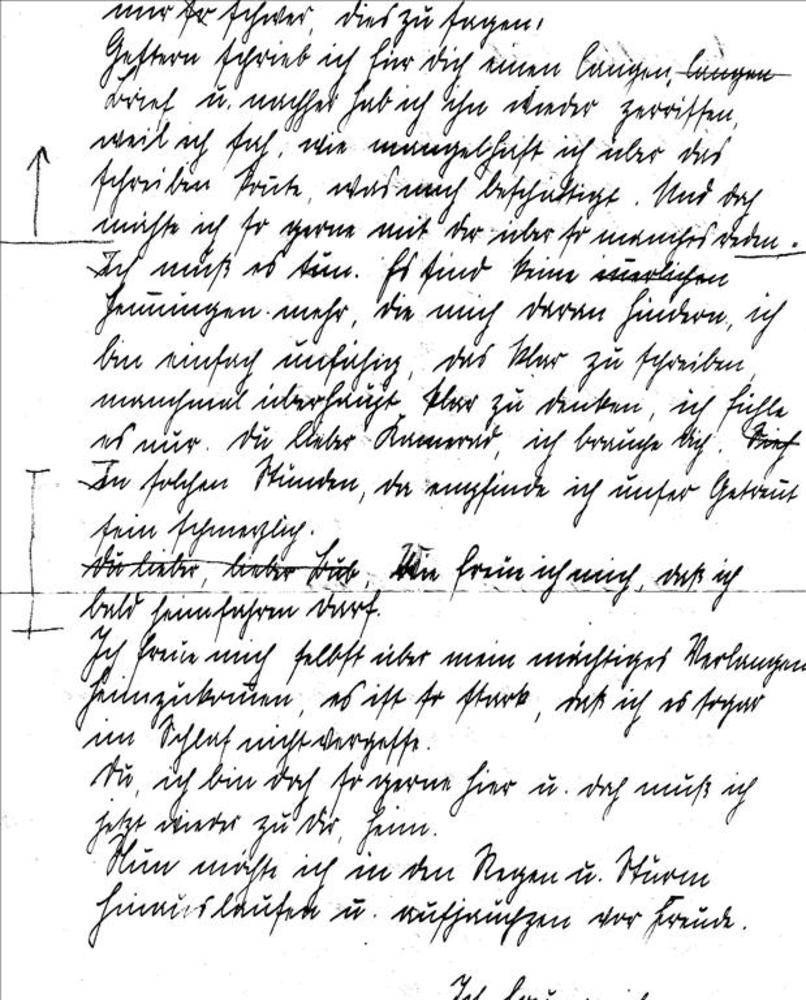 mir so schwer, dies zu sagen.
Gestern schrieb ich für dich einen langen, langen
Brief u. nachher hab ich ihn wieder zerrissen,
weil ich sah, wie mangelhaft ich über das
schreiben konnte, was mich beschäftigt. Und doch
möchte ich so gerne mit dir über so manches reden.
Ich muß es tun. Es sind keine innerlichen
Hemmungen mehr, die mich daran hindern, ich
bin einfach unfähig, das klar zu schreiben,
manchmal überhaupt klar zu denken, ich fühle
es nur. Du lieber Kamerad, ich brauche dich.
In solchen Stunden, da empfinde ich unser Getrennt
sein schmerzlich.
Du lieber, lieber Bub, Wie freu ich mich, daß ich
bald heimfahren darf.
Ich freue mich selbst über mein mächtiges Verlangen
heimzukommen, es ist so stark, daß ich es sogar
im Schlaf nicht vergesse.
Du, ich bin doch so gerne hier u. doch muß ich
jetzt wieder zu dir, heim.
Nun möchte ich in den Regen u. Sturm
hinauslaufen u. aufjauchzen vor Freude.
Ich